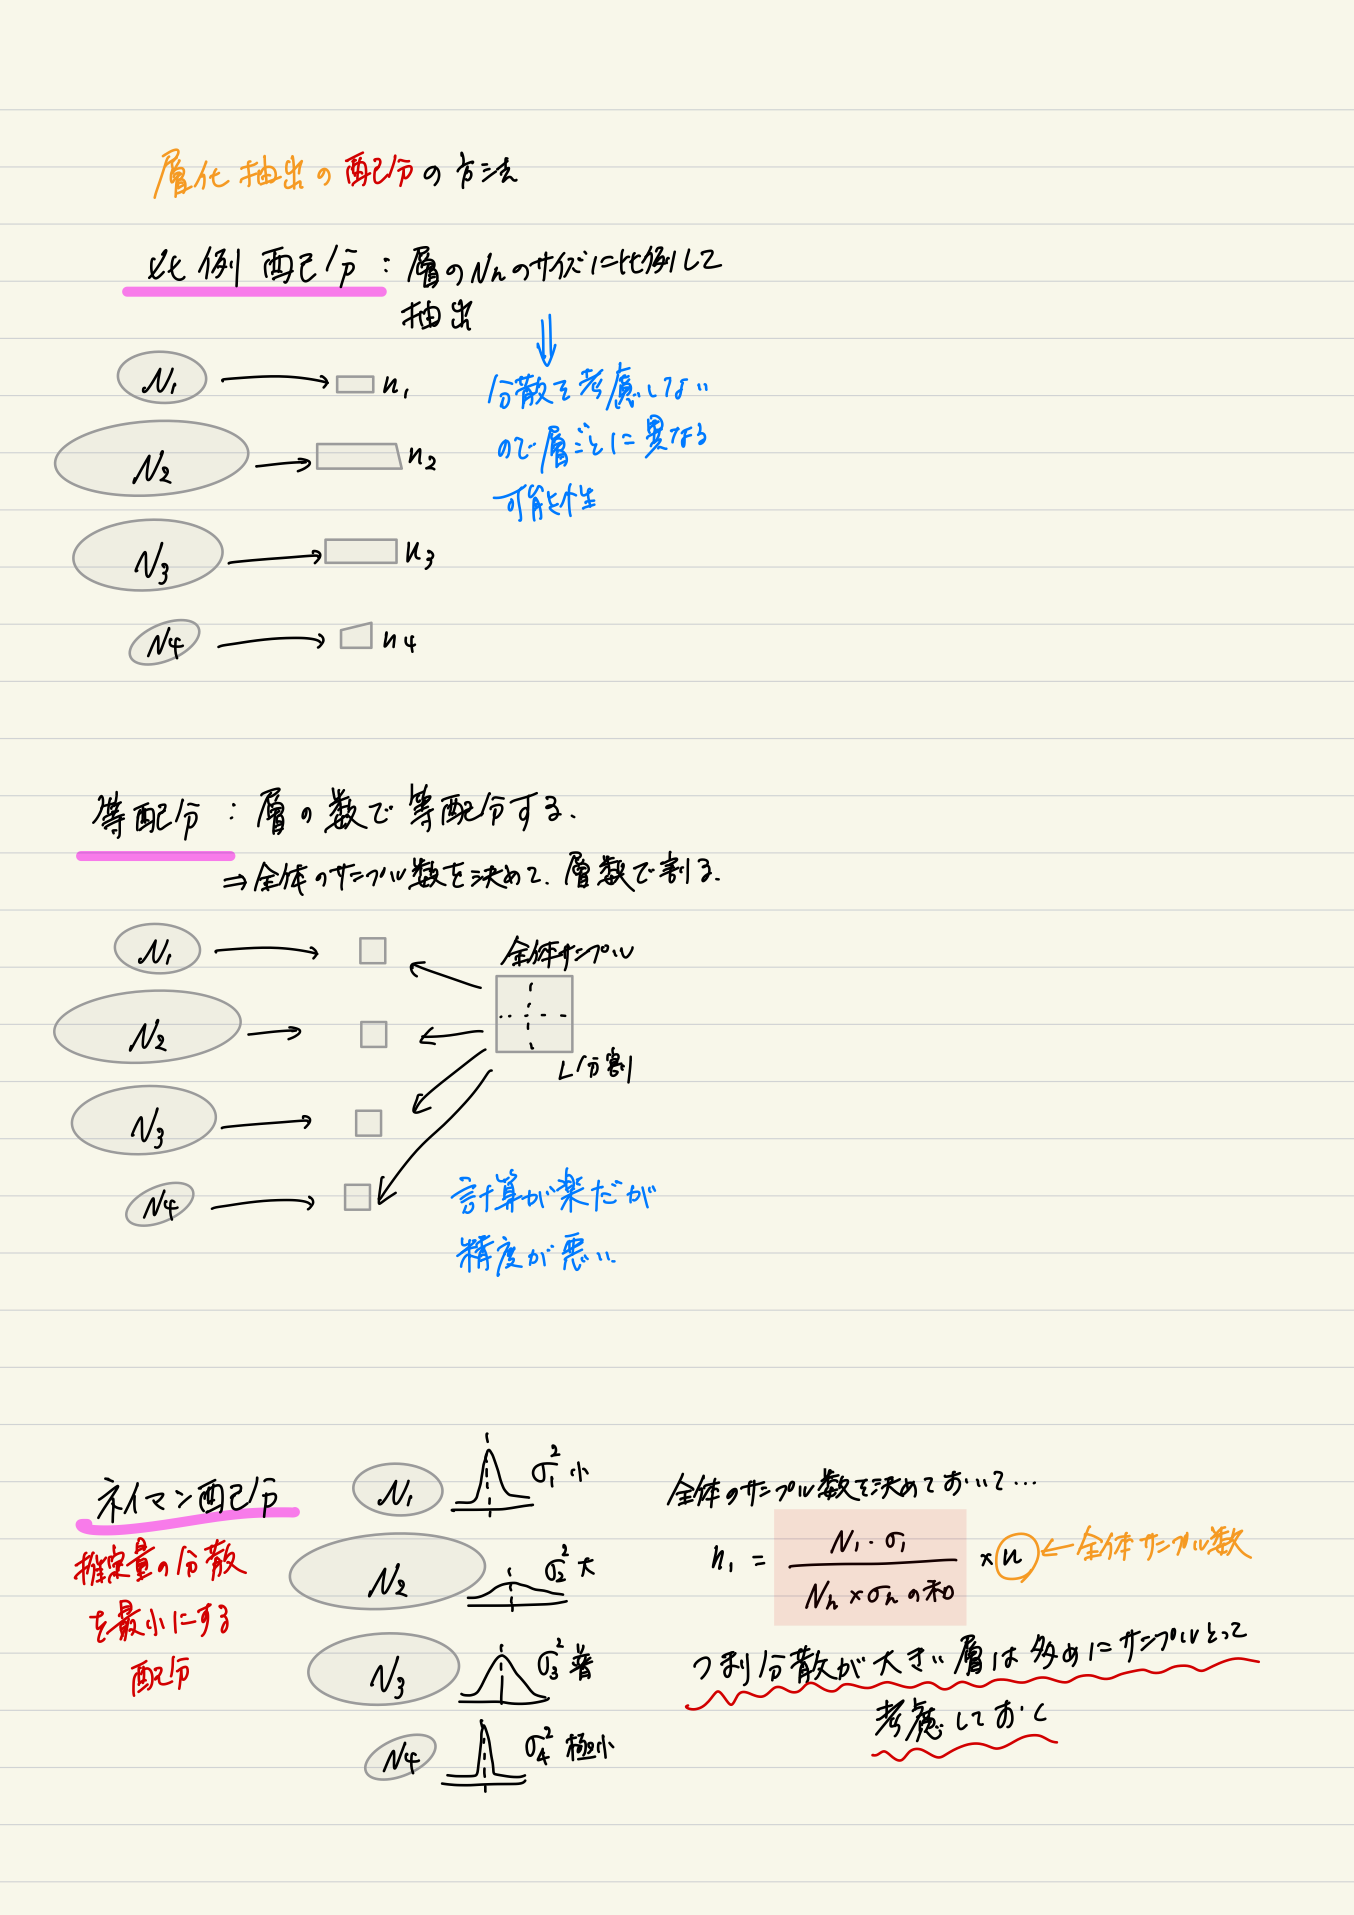 層化抽出の配分の方法
比例配分：層のNhのサイズに比例して
抽出
N1 n1
N2 n2
N3 n3
N4 n4
分散を考慮しない
ので層ごとに異なる
可能性
等配分：層の数で等配分する.
⇒全体のサンプル数を決めて、層数で割る.
N1
N2
N3
N4
全体サンプル
L分割
計算が楽だが
精度が悪い.
ネイマン配分
推定量の分散
を最小にする
配分
N1 σ1² 小
N2 σ2² 大
N3 σ3² 普
N4 σ4² 極小
全体のサンプル数を決めておいて…
n1 = N1・σ1 / Nh×σhの和 × n ← 全体サンプル数
つまり分散が大きい層は多めにサンプルとって
考慮しておく